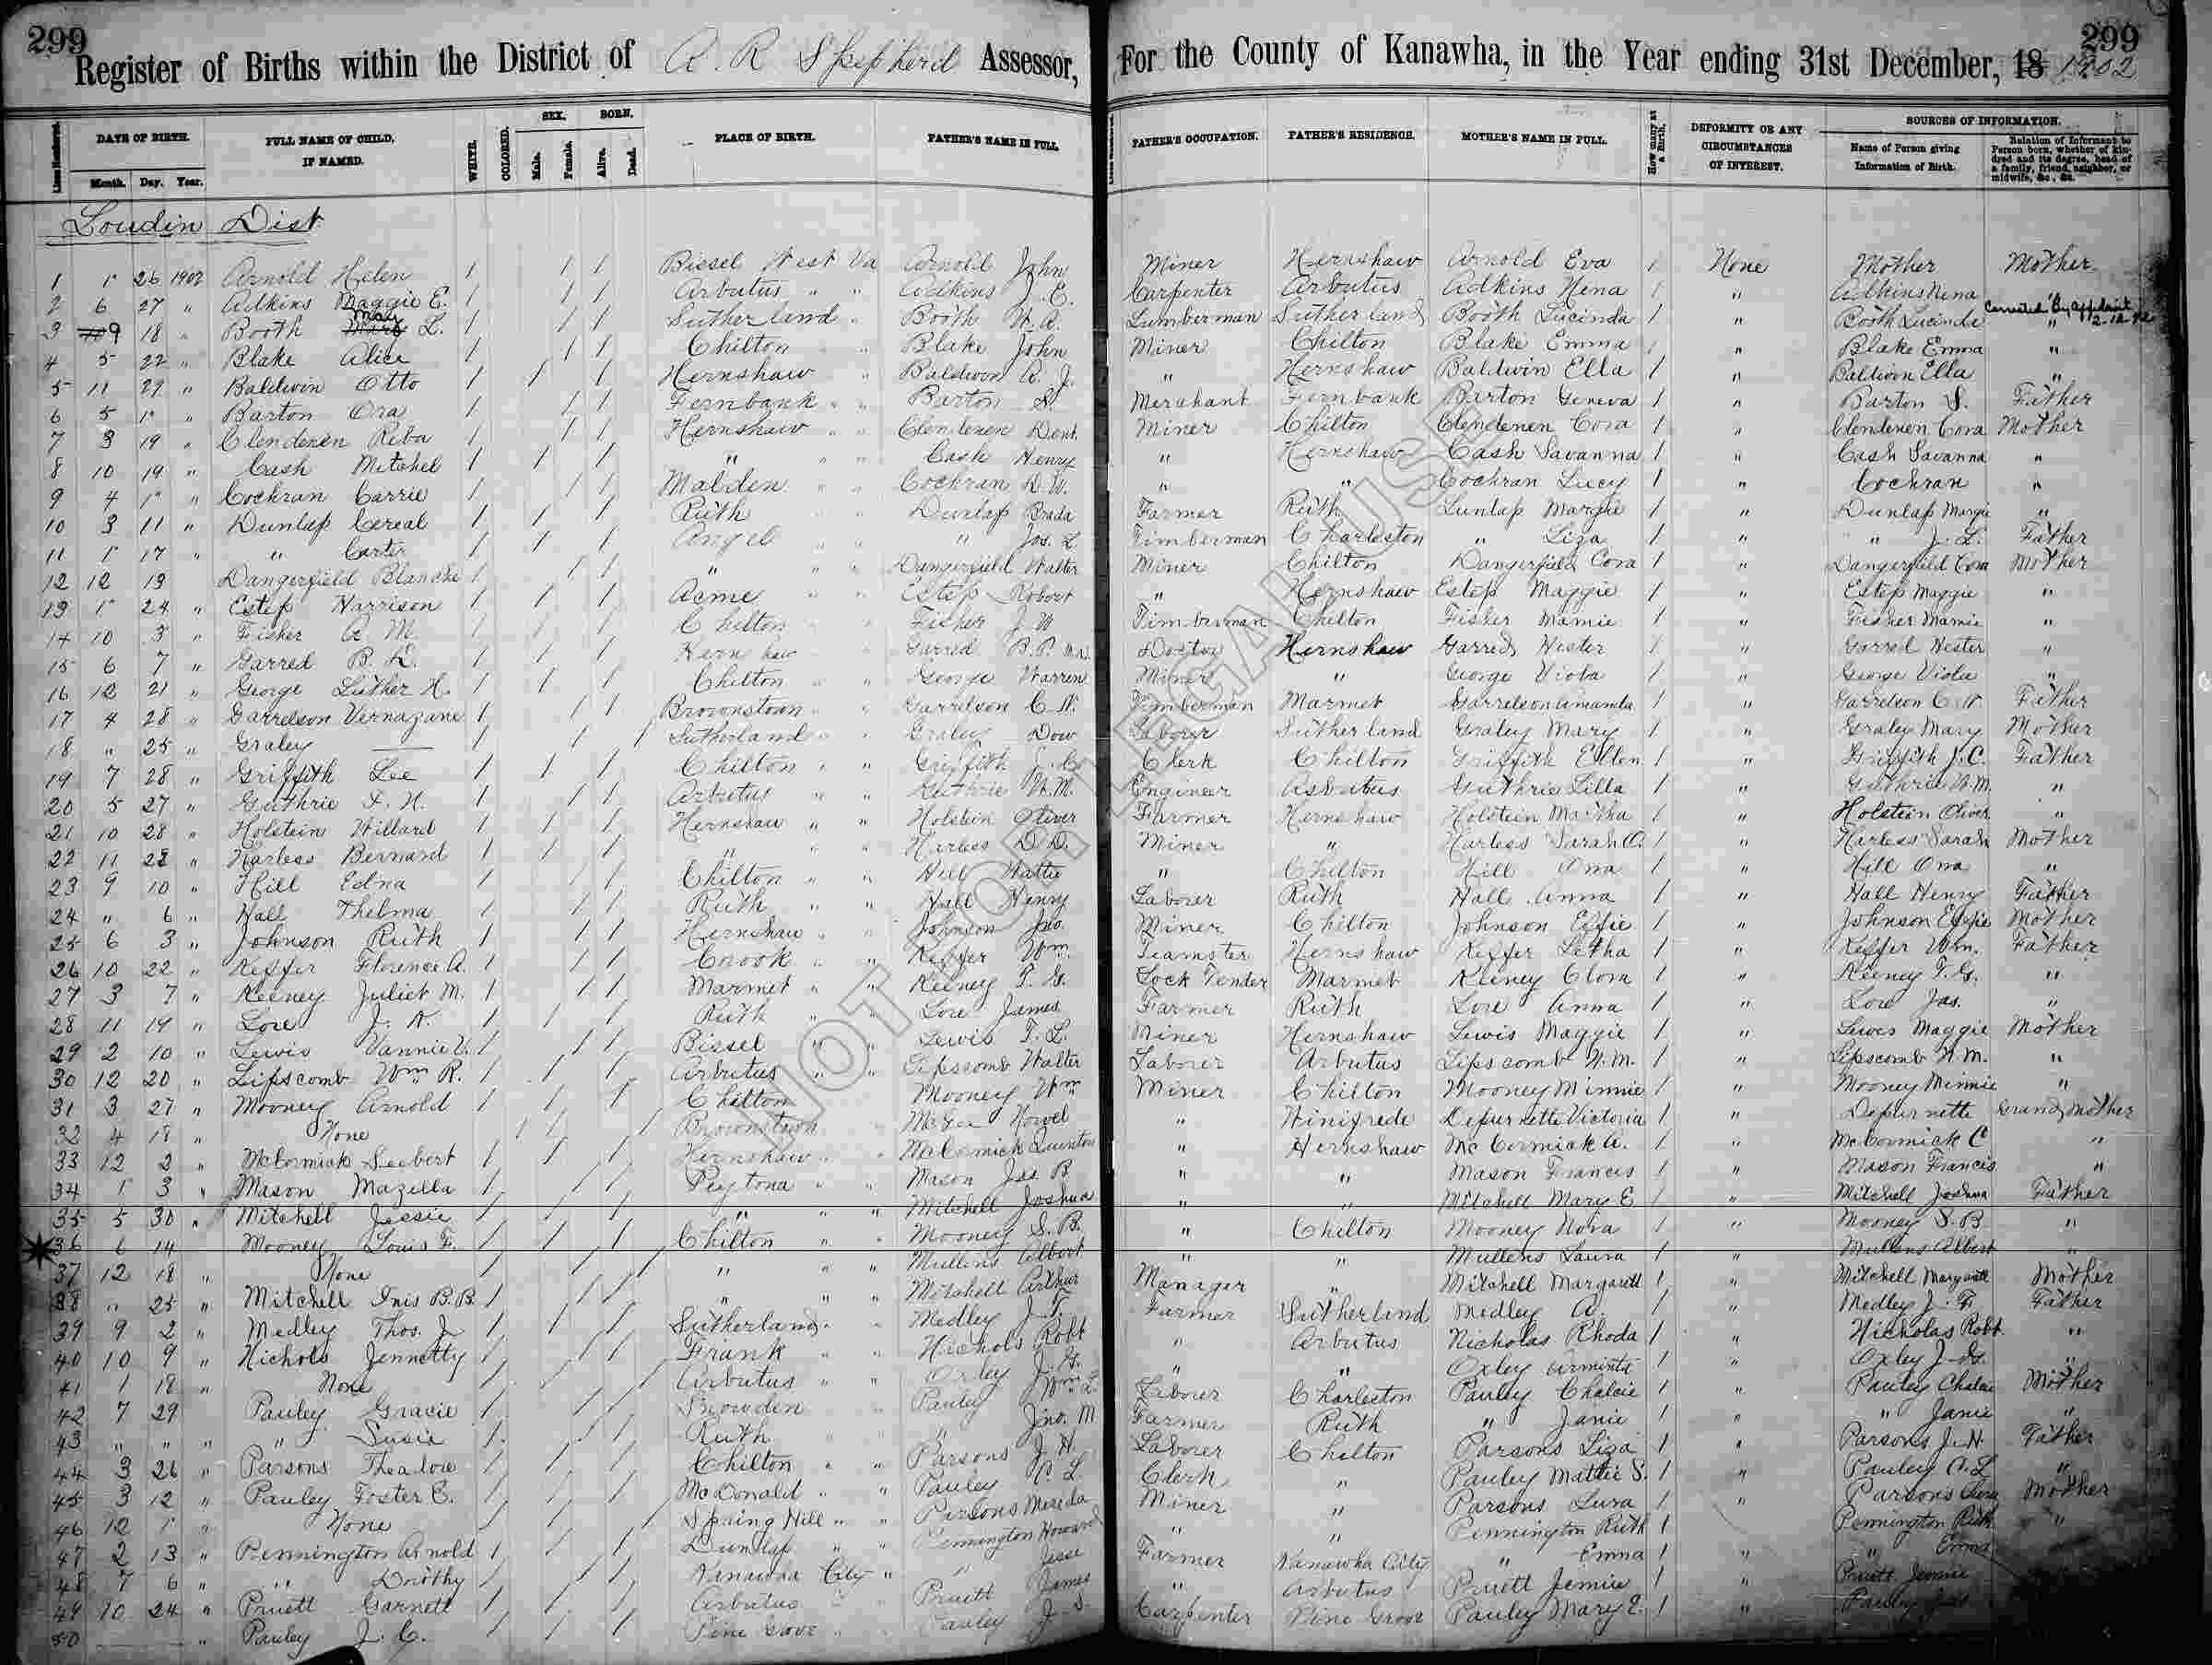 299 299
Register of Births within the District of A. R Shepherd Assessor, For the County of Kanawha, in the Year ending 31st December, 18 1902
Line Numbers. DATE OF BIRTH. Month. Day. Year. FULL NAME OF CHILD, IF NAMED. WHITE. COLORED. SEX. Male. Female. BORN. Alive. Dead. PLACE OF BIRTH. FATHER'S NAME IN FULL. FATHER'S OCCUPATION. FATHER'S RESIDENCE. MOTHER'S NAME IN FULL. How many at a Birth. DEFORMITY OR ANY CIRCUMSTANCES OF INTEREST. SOURCES OF INFORMATION. Name of Person giving Information of Birth. Relation of Informant to Person born, whether of kindred and its degree, head of a family, friend, neighbor, or midwife, &c., &c.
Loudin Dist
1 1 26 1902 Arnold Helen / / / Bissel West Va Arnold John Miner Hernshaw Arnold Eva 1 None Mother Mother
2 6 27 " Adkins Maggie E. / / / Arbutus " " Adkins J. E. Carpenter Arbutus Adkins Nena 1 " Adkins Nena
3 9 18 " Booth May L. / / / Sutherland " Booth W. A. Lumberman Sutherland Booth Lucinda 1 " Booth Lucinda " Corrected By affidavit
4 5 22 " Blake Alice / / / Chilton " Blake John Miner Chilton Blake Emma 1 " Blake Emma "
5 11 27 " Baldwin Otto / / / Hernshaw " Baldwin A. J. " Hernshaw Baldwin Ella 1 " Baldwin Ella "
6 5 1 " Barton Ora / / / Fernbank " " Barton S. Merchant Fernbank Barton Geneva 1 " Barton S. Father
7 3 19 " Clendenen Reba / / / Hernshaw " " Clendenen Dent. Miner Chilton Clendenen Cora 1 " Clendenen Cora Mother
8 10 19 " Cash Mitchel / / / " " " Cash Henry " Hernshaw Cash Savanna 1 " Cash Savanna "
9 4 1 " Cochran Carrie / / / Malden " " Cochran D. W. " " Cochran Lucy 1 " Cochran "
10 3 11 " Dunlap Cereal / / / Ruth " " Dunlap Brada Farmer Ruth Dunlap Margie 1 " Dunlap Margie "
11 1 17 " " Carter / / / Angel " " " Jos. L. Timberman Charleston " Liza 1 " " J. L. Father
12 12 13 Dangerfield Blanche / / / " " " Dangerfield Walter Miner Chilton Dangerfield Cora 1 " Dangerfield Cora Mother
13 1 24 " Estep Harrison / / / Acme " " Estep Robert " Hernshaw Estep Maggie 1 " Estep Maggie "
14 10 3 " Fisher A. M. / / / Chilton " " Fisher J. W Timberman Chilton Fisher Mamie 1 " Fisher Mamie "
15 6 7 " Garred B. D. / / / Hernshaw " " Garred B. P. M.D. Doctor Hernshaw Garred Hester 1 " Garred Hester "
16 12 21 " George Luther H. / / / Chilton " " George Warren Miner " George Viola 1 " George Viola "
17 4 28 " Garrelson Vernazane / / / Brownstown " " Garrelson C. W. Timberman Marmet Garrelson Amanda 1 " Garrelson C. W Father
18 " 25 " Graley —— / / / Sutherland " " Graley Dow Laborer Sutherland Graley Mary 1 " Graley Mary Mother
19 7 28 " Griffith Lee / / / Chilton " " Griffith J. C Clerk Chilton Griffith Ellen 1 " Griffith J. C. Father
20 5 27 " Guthrie F. H. / / / Arbutus " " Guthrie W. M. Engineer Arbutus Guthrie Lilla 1 " Guthrie W. M. "
21 10 28 " Holstein Willard / / / Hernshaw " " Holstein Oliver Farmer Hernshaw Holstein Martha 1 " Holstein Oliver "
22 11 22 " Harless Bernard / / / " " " Harless D. D. Miner " Harless Sarah A. 1 " Harless Sarah Mother
23 9 10 " Hill Edna / / / Chilton " " Hill Wattie " Chilton Hill Ona 1 " Hill Ona "
24 " 6 " Hall Thelma / / / Ruth " " Hall Henry Laborer Ruth Hall Anna 1 " Hall Henry Father
25 6 3 " Johnson Ruth / / / Hernshaw " " Johnson Jno. Miner Chilton Johnson Effie 1 " Johnson Effie Mother
26 10 22 " Keffer Florence A. / / / Crook " " Keffer Wm. Teamster Hernshaw Keffer Letha 1 " Keffer Wm. Father
27 3 7 " Keeney Juliet M. / / / Marmet " " Keeney T. G. Lock Tender Marmet Keeney Clora 1 " Keeney T. G. "
28 11 19 " Lore J. A. / / / Ruth " " Lore James Farmer Ruth Lore Anna 1 " Lore Jas. "
29 2 10 " Lewis Vannie V. / / / Bissel " " Lewis T. L. Miner Hernshaw Lewis Maggie 1 " Lewis Maggie Mother
30 12 20 " Lipscomb Wm R. / / / Arbutus " " Lipscomb Walter Laborer Arbutus Lipscomb N. M. 1 " Lipscomb N. M. "
31 3 27 " Mooney Arnold / / / Chilton Mooney Wm Miner Chilton Mooney Minnie 1 " Mooney Minnie "
32 4 18 " None / / / Brownstown McGee Howel " Winifrede Depurnette Victoria 1 " Depurnette Grand Mother
33 12 2 " McCormick Seebert / / / Hernshaw " " McCormick Quinton " Hernshaw McCormick A. 1 " McCormick C "
34 1 3 " Mason Mazilla / / / Peytona " " Mason Jas. B " " Mason Francis 1 " Mason Francis "
35 5 30 " Mitchell Jessie / / / " " " Mitchell Joshua " " Mitchell Mary E. 1 " Mitchell Joshua Father
36 6 14 Mooney Louis F. / / / Chilton " " Mooney S. B. " Chilton Mooney Nora 1 " Mooney S. B "
37 12 18 " None / / / " " " Mullens Albert " " Mullens Laura 1 " Mullens Albert "
38 " 25 " Mitchell Inis B. B. / / / " " " Mitchell Arthur Manager " Mitchell Margarett 1 " Mitchell Margarett Mother
39 9 2 " Medley Thos. J. / / / Sutherland " " Medley J. F. Farmer Sutherland Medley A. 1 " Medley J. F. Father
40 10 9 " Nichols Jennetty / / / Frank " " Nichols Robt " Arbutus Nicholas Rhoda 1 " Nicholas Robt. "
41 1 18 " None / / / Arbutus " " Oxley J. G. " " Oxley Arminta 1 " Oxley J. G. "
42 7 29 " Pauley Gracie / / / Snowden " Pauley Wm L. Laborer Charleston Pauley Chalcie 1 " Pauley Chalcie Mother
43 " " " " Susie / / / Ruth " " " Jno. M Farmer Ruth " Janie 1 " " Janie "
44 3 26 " Parsons Theadore / / / Chilton " " Parsons J. H. Laborer Chilton Parsons Liza 1 " Parsons J. H. Father
45 3 12 " Pauley Foster E. / / / McDonald " " Pauley C. L. Clerk " Pauley Mattie S. 1 " Pauley C. L "
46 12 1 " None / / / Spring Hill " " Parsons Mereda Miner " Parsons Lura 1 " Parsons Lura Mother
47 2 13 " Pennington Arnold / / / Dunlap " " Pennington Howard " " Pennington Ruth 1 Pennington Ruth "
48 7 6 " " Dorothy / / / Kanawha City " " Jesse Farmer Kanawha City " Emma 1 " " Emma
49 10 24 " Pruett Garnett / / / Arbutus " Pruett James " Arbutus Pruett Jemiie 1 " Pruett Jemiie
50 " Pauley J. C. / / / Pine Grove " " Pauley J. S. Carpenter Pine Grove Pauley Mary E. 1 " Pauley
NOT FOR LEGAL USE